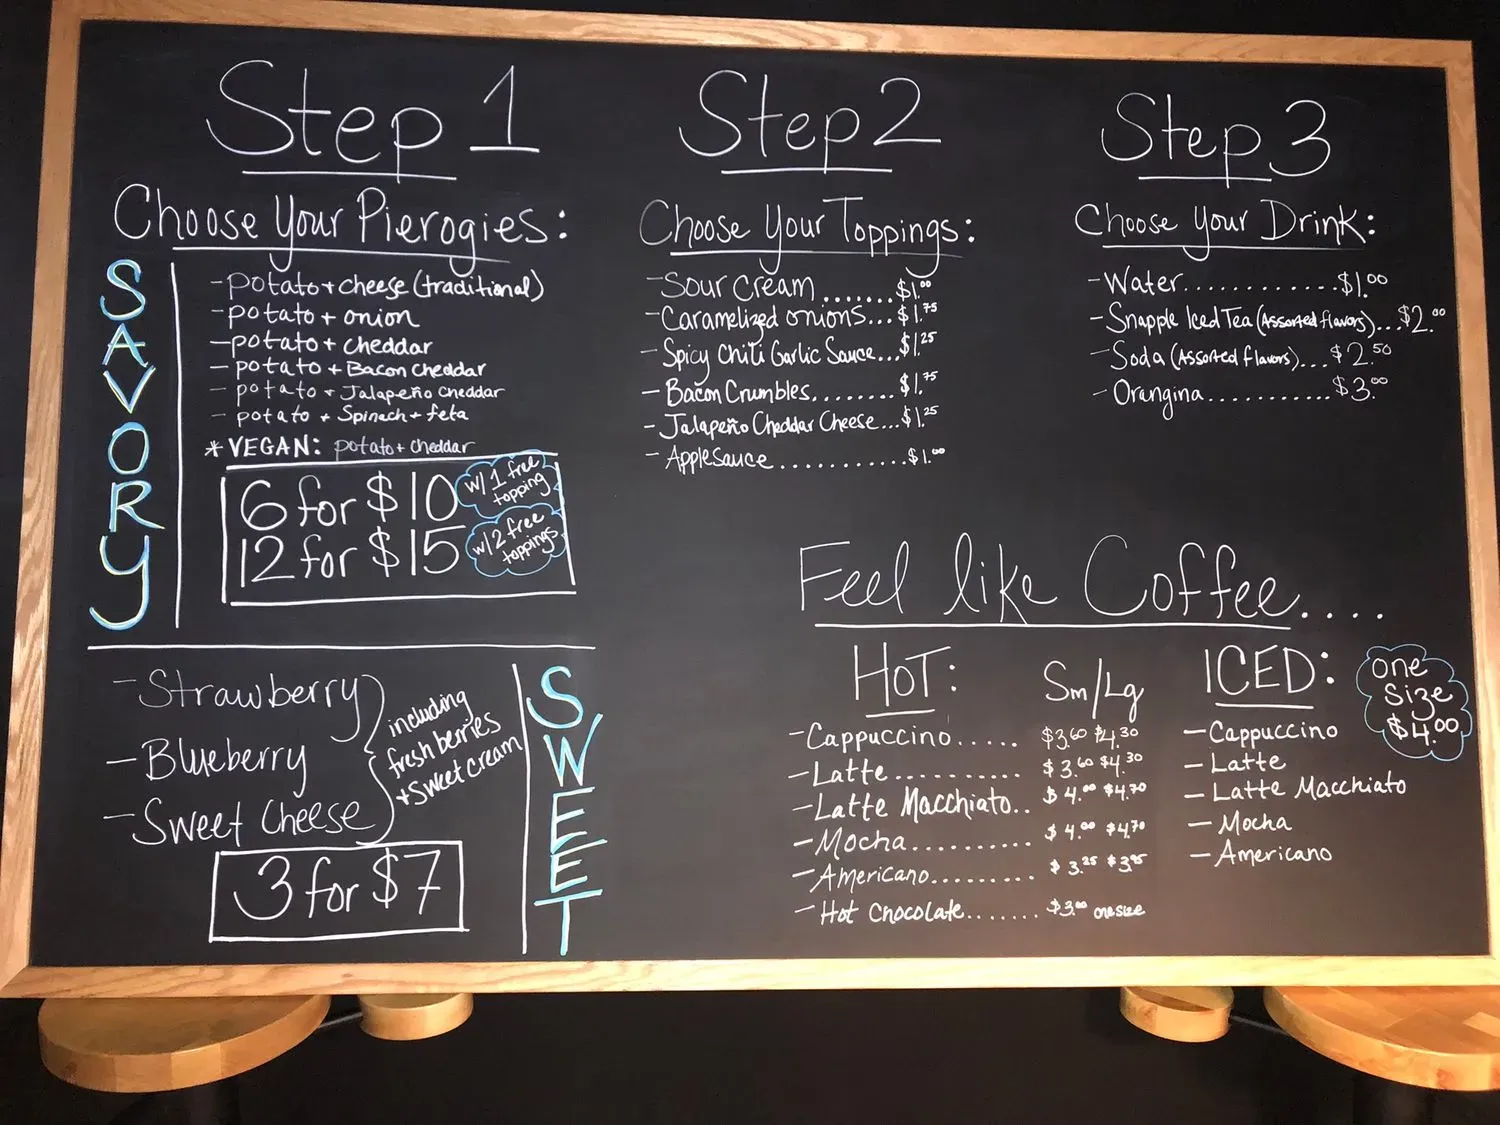 Step 1
Choose Your Pierogies:
SAVORY
- potato + cheese (traditional)
- potato + onion
- potato + cheddar
- potato + Bacon Cheddar
- potato + Jalapeño Cheddar
- potato + Spinach + feta
* VEGAN: potato + cheddar
6 for $10 w/ 1 free topping
12 for $15 w/ 2 free toppings
- Strawberry
- Blueberry
- Sweet Cheese
including
fresh berries
+ Sweet Cream
3 for $7
SWEET
Step 2
Choose Your Toppings:
- Sour Cream ....... $1.00
- Caramelized onions... $1.75
- Spicy Chili Garlic Sauce... $1.25
- Bacon Crumbles........ $1.75
- Jalapeño Cheddar Cheese... $1.25
- Applesauce ........... $1.00
Step 3
Choose Your Drink:
- Water............ $1.00
- Snapple Iced Tea (Assorted flavors)... $2.00
- Soda (Assorted flavors)... $2.50
- Orangina........... $3.00
Feel like Coffee....
HOT: Sm/Lg
- Cappuccino..... $3.60 $4.30
- Latte.......... $3.60 $4.30
- Latte Macchiato.. $4.00 $4.70
- Mocha.......... $4.00 $4.70
- Americano......... $3.25 $3.95
- Hot Chocolate....... $3.00 one size
ICED:
one
Size
$4.00
- Cappuccino
- Latte
- Latte Macchiato
- Mocha
- Americano